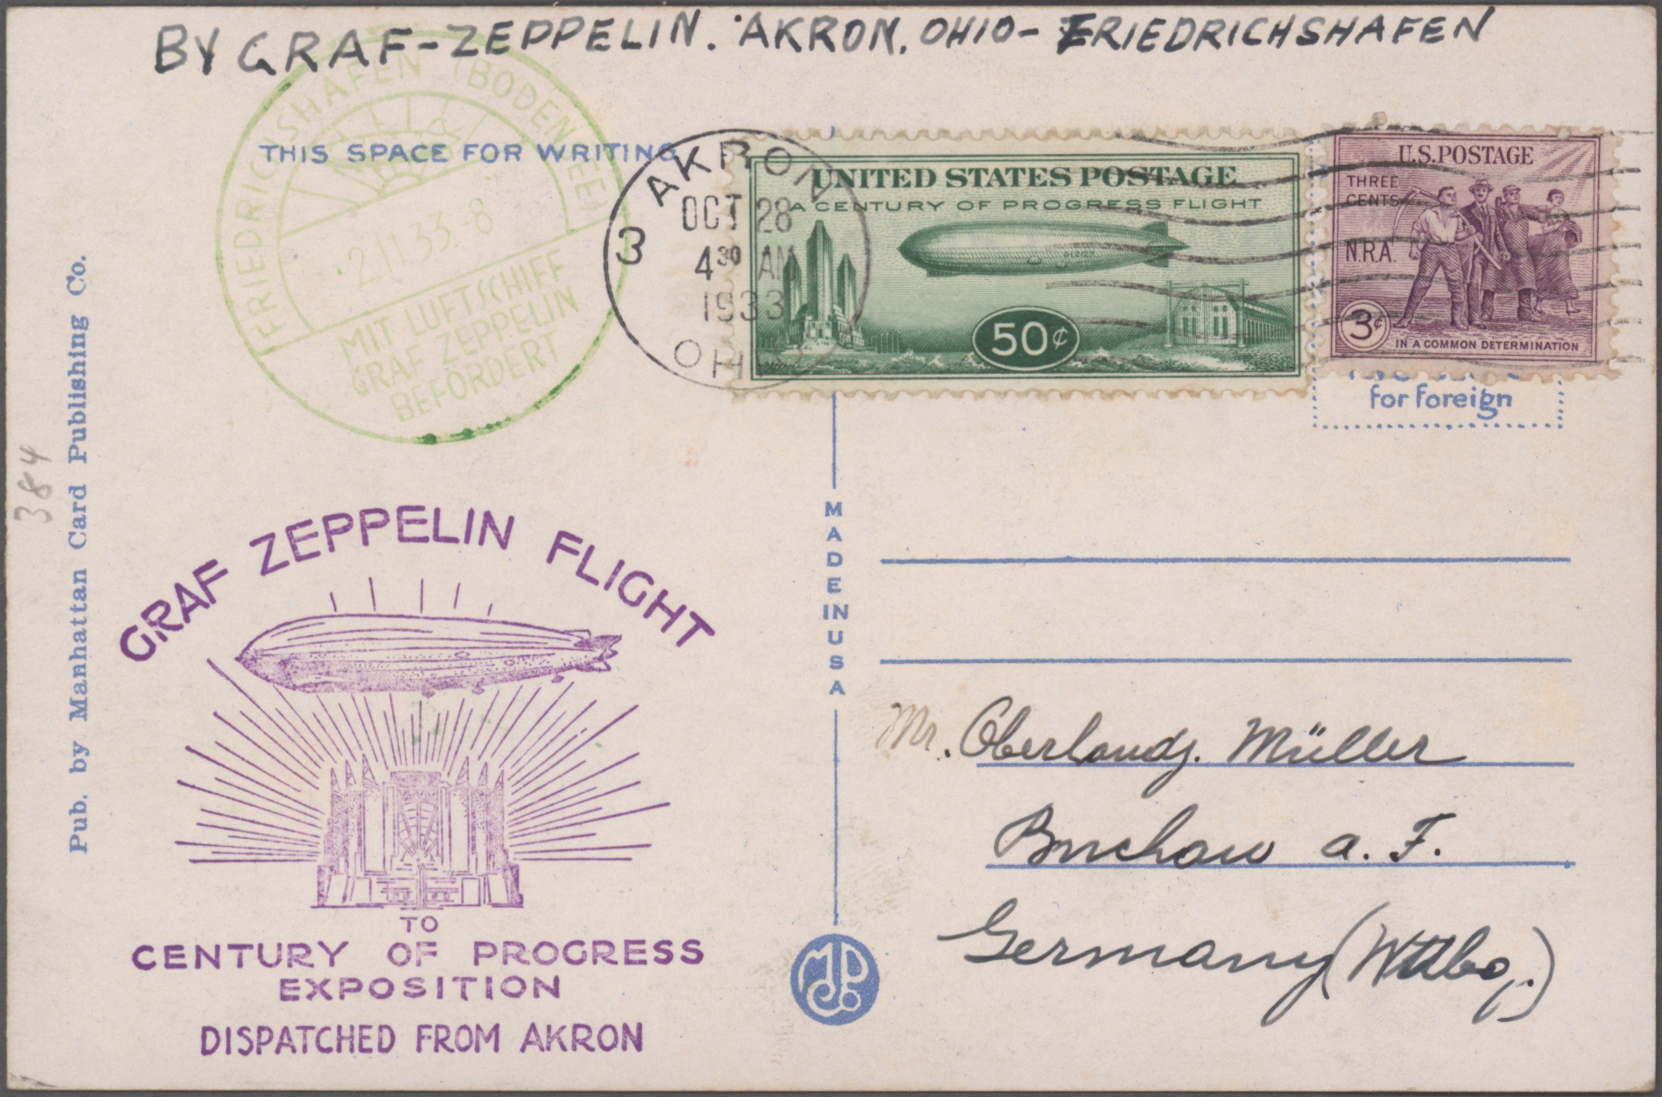 BY GRAF-ZEPPELIN. AKRON, OHIO- FRIEDRICHSHAFEN
FRIEDRICHSHAFEN (BODENSEE)
2.11.33.-8
MIT LUFTSCHIFF
GRAF ZEPPELIN
BEFÖRDERT
THIS SPACE FOR WRITING
AKRON
OCT 28
3
4 30 AM
1933
OHIO
UNITED STATES POSTAGE
A CENTURY OF PROGRESS FLIGHT
50¢
U.S. POSTAGE
THREE
CENTS
N.R.A.
3¢
IN A COMMON DETERMINATION
for foreign
384
Pub. by Manhattan Card Publishing Co.
GRAF ZEPPELIN FLIGHT
TO
CENTURY OF PROGRESS
EXPOSITION
DISPATCHED FROM AKRON
MADE IN USA
Mr. Oberlandj. Müller
Buchau a. F.
Germany (Wttbg.)